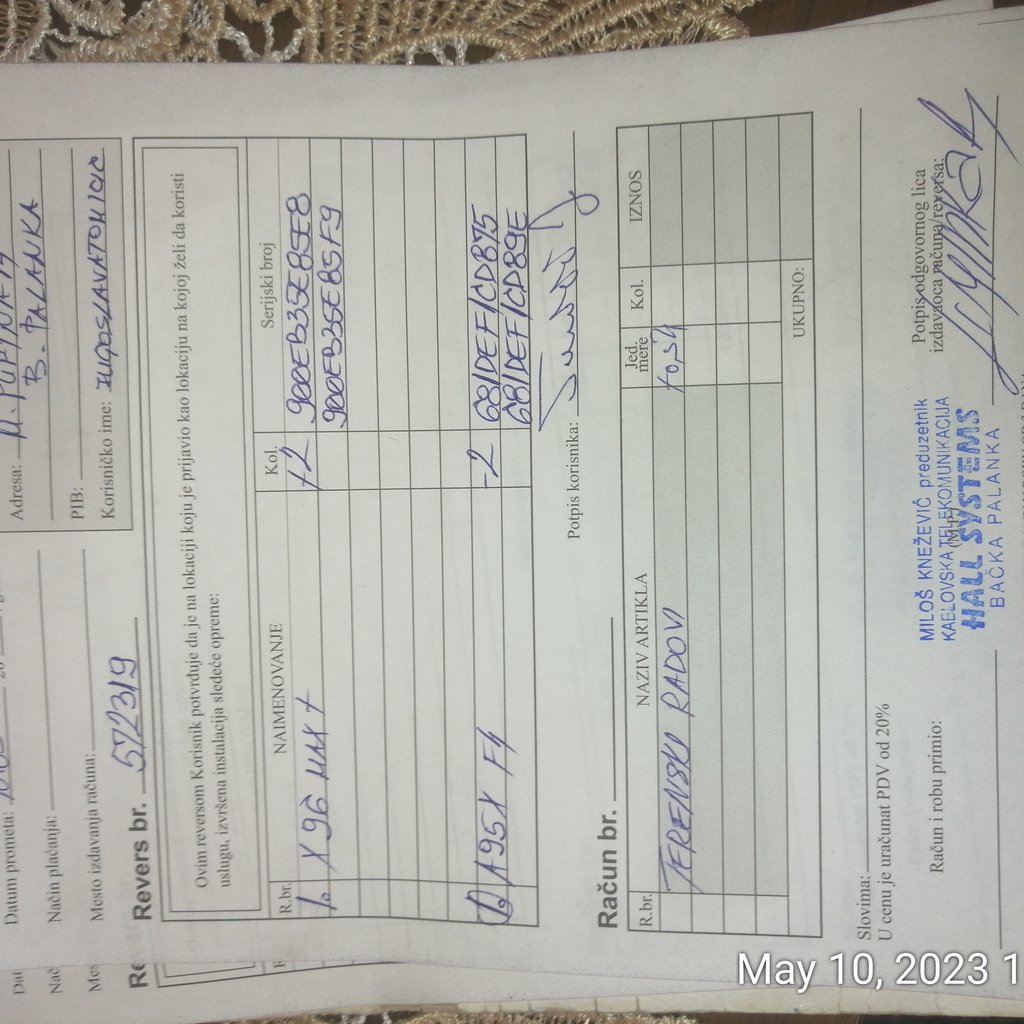 Datum prometa:
Način plaćanja:
Mesto izdavanja računa:
Adresa: M. PUPINA 19
B. PALANKA
PIB:
Korisničko ime: JUGOSLAVATOMICIC
Revers br. 572319
Ovim reversom Korisnik potvrđuje da je na lokaciji koju je prijavio kao lokaciju na kojoj želi da koristi
uslugu, izvršena instalacija sledeće opreme:
R.br. NAIMENOVANJE Kol. Serijski broj
1. X96 MAX+ -2 900EB35E85E8
900EB35E85F9
1. A95X F4 -2 681DEF1CD875
681DEF1CD89E
Potpis korisnika:
Račun br.
R.br. NAZIV ARTIKLA Jed. mere Kol. IZNOS
TERENSKI RADOVI
UKUPNO:
Slovima:
U cenu je uračunat PDV od 20%
Račun i robu primio:
(M.P.)
MILOŠ KNEŽEVIĆ preduzetnik
KABLOVSKA TELEKOMUNIKACIJA
HALL SYSTEMS
BAČKA PALANKA
Potpis odgovornog lica
izdavaoca računa/reversa:
Dat
Nač
Mes
Re
May 10, 2023 1